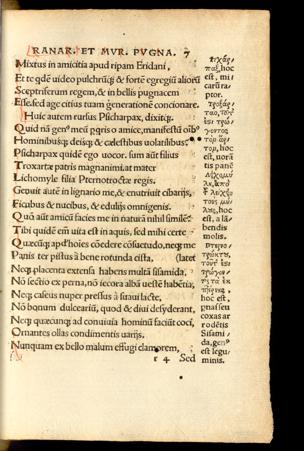 RANAR. ET MVR. PVGNA. 7
Mixtus in amicitia apud ripam Eridani,
Et te quidem uideo pulchrūque & fortē egregiū aliorū
Sceptriferum regem, & in bellis pugnacem
Esse. sed age citius tuam generationē concionare.
Huic autem rursus Psicharpax, dixitque.
Quid nā genus meū quæris o amice, manifestū
Hominibusque deisque & cælestibus uolatilibus.
Psicharpax quidē ego uocor. sum aūt filius
Troxartæ patris magnanimi. at mater
Lichomyle filia Pternotroctæ regis.
Genuit autē in lignario me, & enutriuit cibarijs,
Ficubus & nucibus, & edulijs omnigenis.
Quō aūt amicū facies me in naturā nihil similē?
Tibi quidē em̄ uita est in aquis, sed mihi certe
Quæcūque apd' hoies cōedere cōsuetudo. neque me
Panis ter pistus à bene rotunda cista, (latet
Neque placenta extensa habens multā sisamida,
Nō sectio ex perna, nō iecora albā uestē habētia,
Neque caseus nuper pressus à suaui lacte,
Nō bonum dulceariū, quod & diui desyderant,
Neque quæcunque ad conuiuia hominū faciūt coci,
Ornantes ollas condimentis uarijs.
Nunquam ex bello malum effugi clamorem,
r 4 Sed
hoc
est, mi
carū ra/
ptor.
hoc
est, uorā
tis panē
hoc
est, a lā/
bendis
molis.
hoc est,
gnasseu
coxas ar
rodētis
Sisami/
da, genus
est legu/
minis.